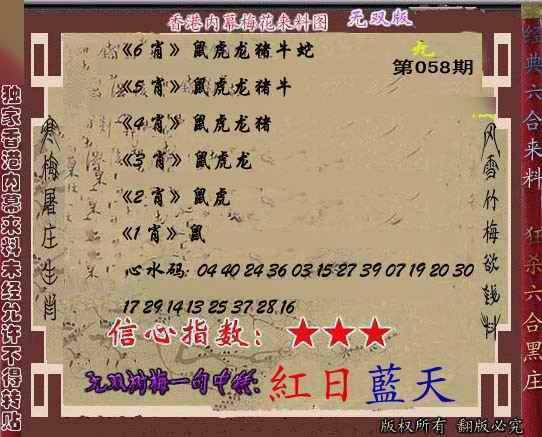 香港内幕梅花来料图 无双版
无
第058期
《6 肖》 鼠虎龙猪牛蛇
《5 肖》 鼠虎龙猪牛
《4 肖》 鼠虎龙猪
《3 肖》 鼠虎龙
《2 肖》 鼠虎
《1 肖》 鼠
心水码: 04 40 24 36 03 15 27 39 07 19 20 30
17 29 14 13 25 37 28 16
信心指数: ★★★
无双对梅一句中特: 紅日藍天
独家香港内幕来料未经允许不得转贴
寒梅屠庄生肖
风雪竹梅欲钱料
经典六合来料 狂杀六合黑庄
版权所有 翻版必究